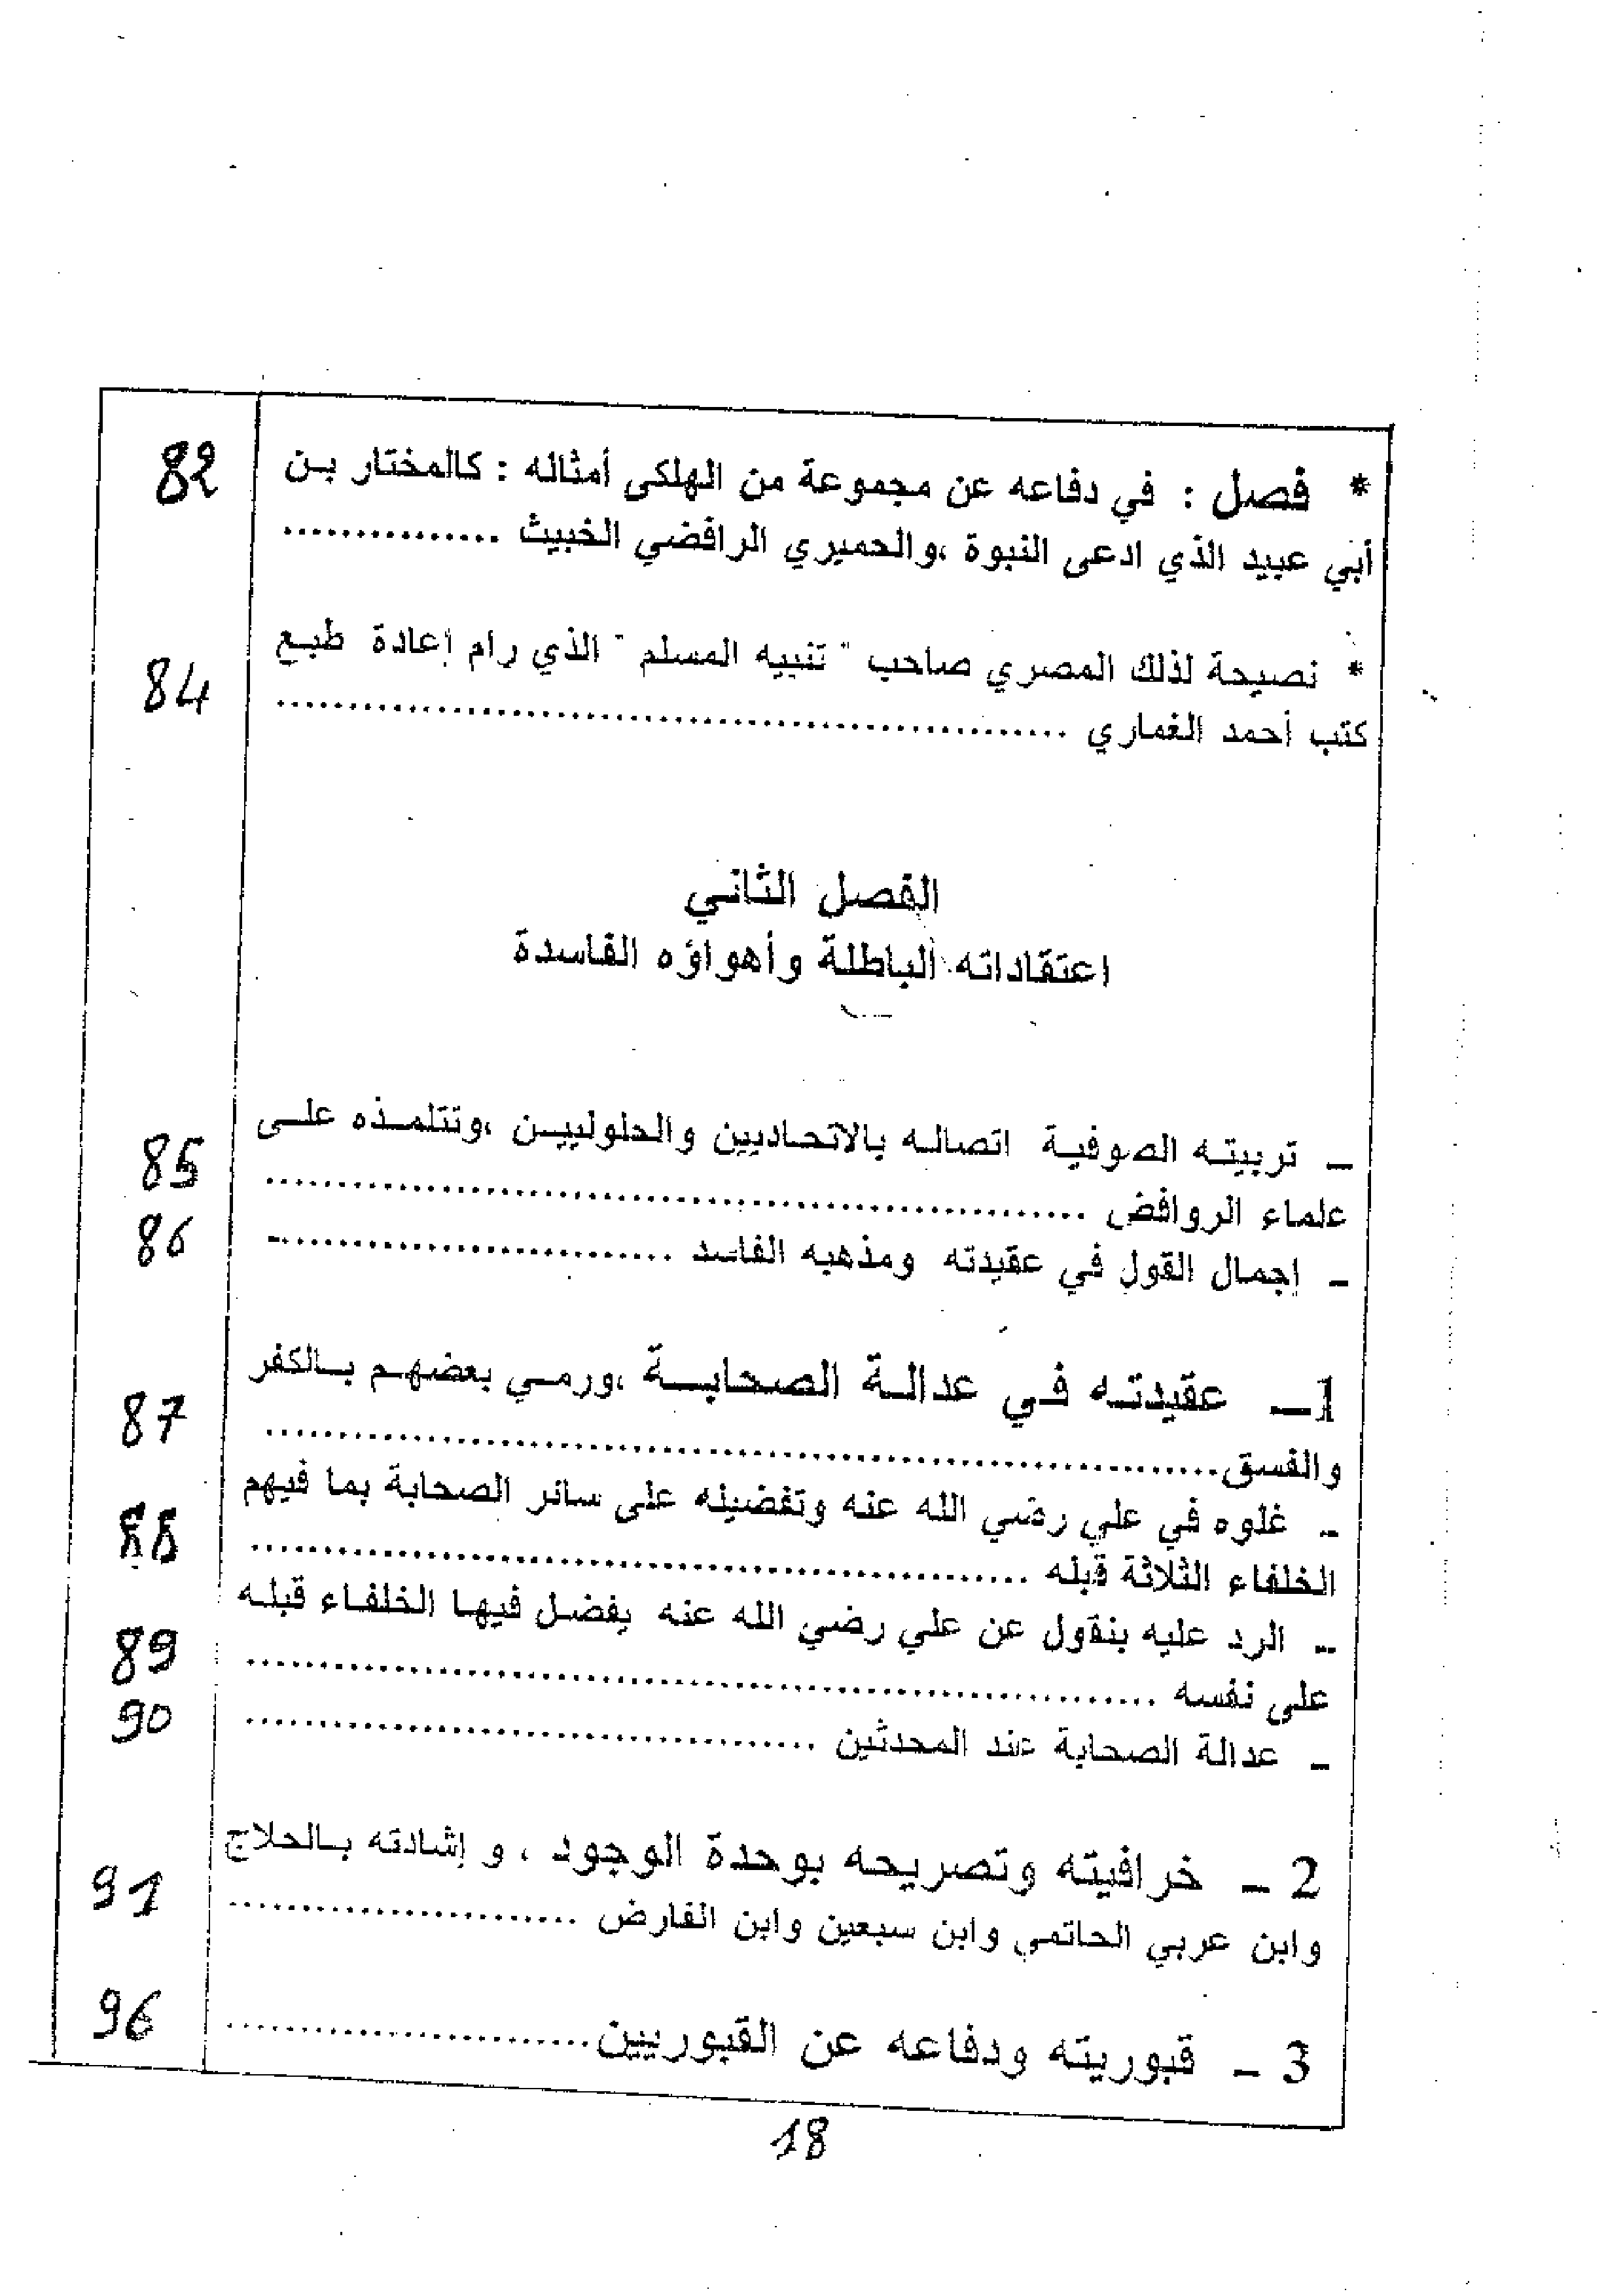 * فصل : في دفاعه عن مجموعة من الهلكى أمثاله : كالمختار بن 82
أبي عبيد الذي ادعى النبوة ،والحميري الرافضي الخبيث ...............
* نصيحة لذلك المصري صاحب " تنبيه المسلم " الذي رام إعادة طبع 84
كتب أحمد الغماري .......................................................
الفصل الثاني
اعتقاداته الباطلة وأهواؤه الفاسدة
– تربيته الصوفية اتصاله بالاتحاديين والحلوليين ،وتتلمذه على 85
علماء الروافض .........................................................
- إجمال القول في عقيدته ومذهبه الفاسد ........................... 86
1– عقيدته في عدالة الصحابة ،ورمي بعضهم بالكفر 87
والفسق..................................................................
- غلوه في علي رضي الله عنه وتفضيله على سائر الصحابة بما فيهم 88
الخلفاء الثلاثة قبله ......................................................
- الرد عليه بنقول عن علي رضي الله عنه يفضل فيها الخلفاء قبله 89
على نفسه ...............................................................
- عدالة الصحابة عند المحدثين ....................................... 90
2 - خرافيته وتصريحه بوحدة الوجود ، و إشادته بالحلاج 91
وابن عربي الحاتمي وابن سبعين وابن الفارض ........................
3 - قبوريته ودفاعه عن القبوريين......................... 96
18